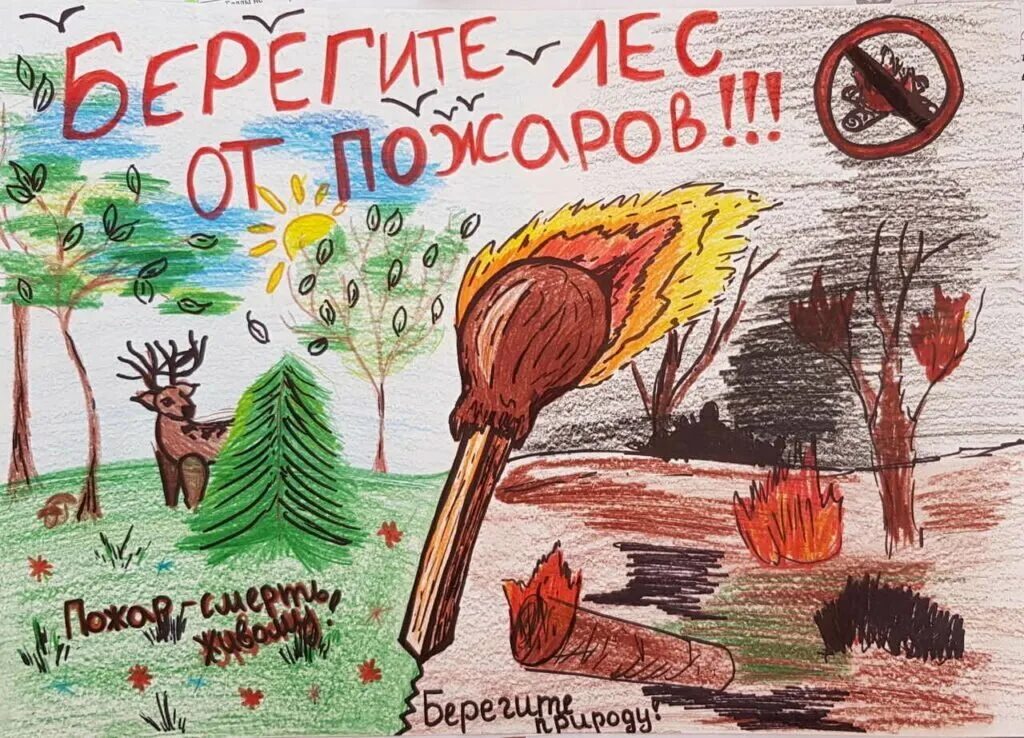 БЕРЕГИТЕ ЛЕС
ОТ ПОЖАРОВ!!!
Пожар-смерть
живому!
Берегите
природу!